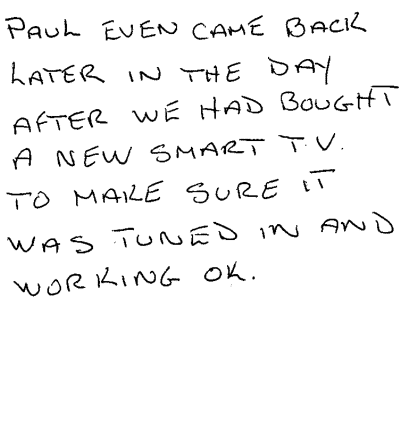 PAUL EVEN CAME BACK
LATER IN THE DAY
AFTER WE HAD BOUGHT
A NEW SMART T.V.
TO MAKE SURE IT
WAS TUNED IN AND
WORKING OK.